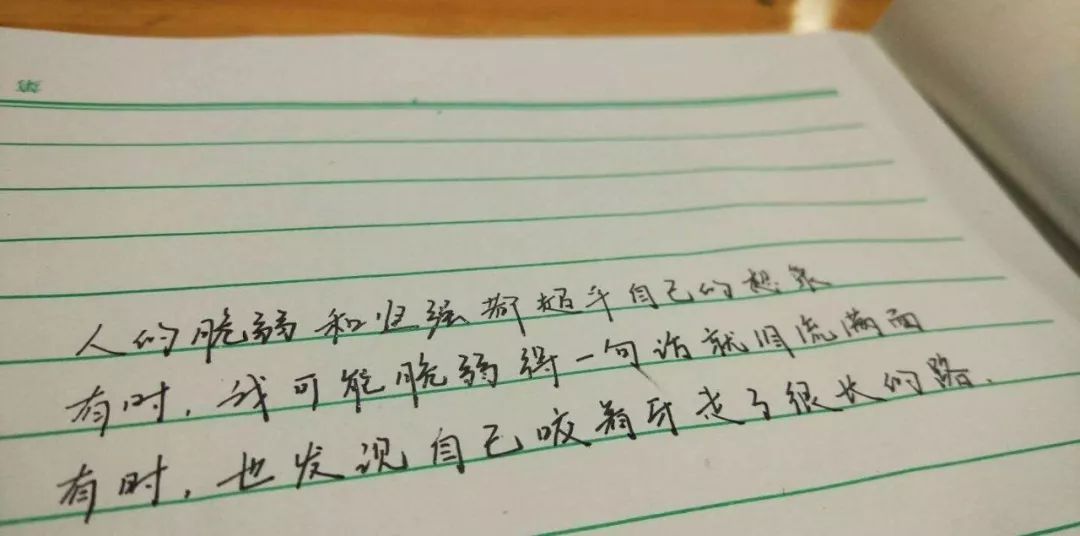 人的脆弱和坚强都超乎自己的想象
有时，我可能脆弱得一句话就泪流满面
有时，也发现自己咬着牙走了很长的路.